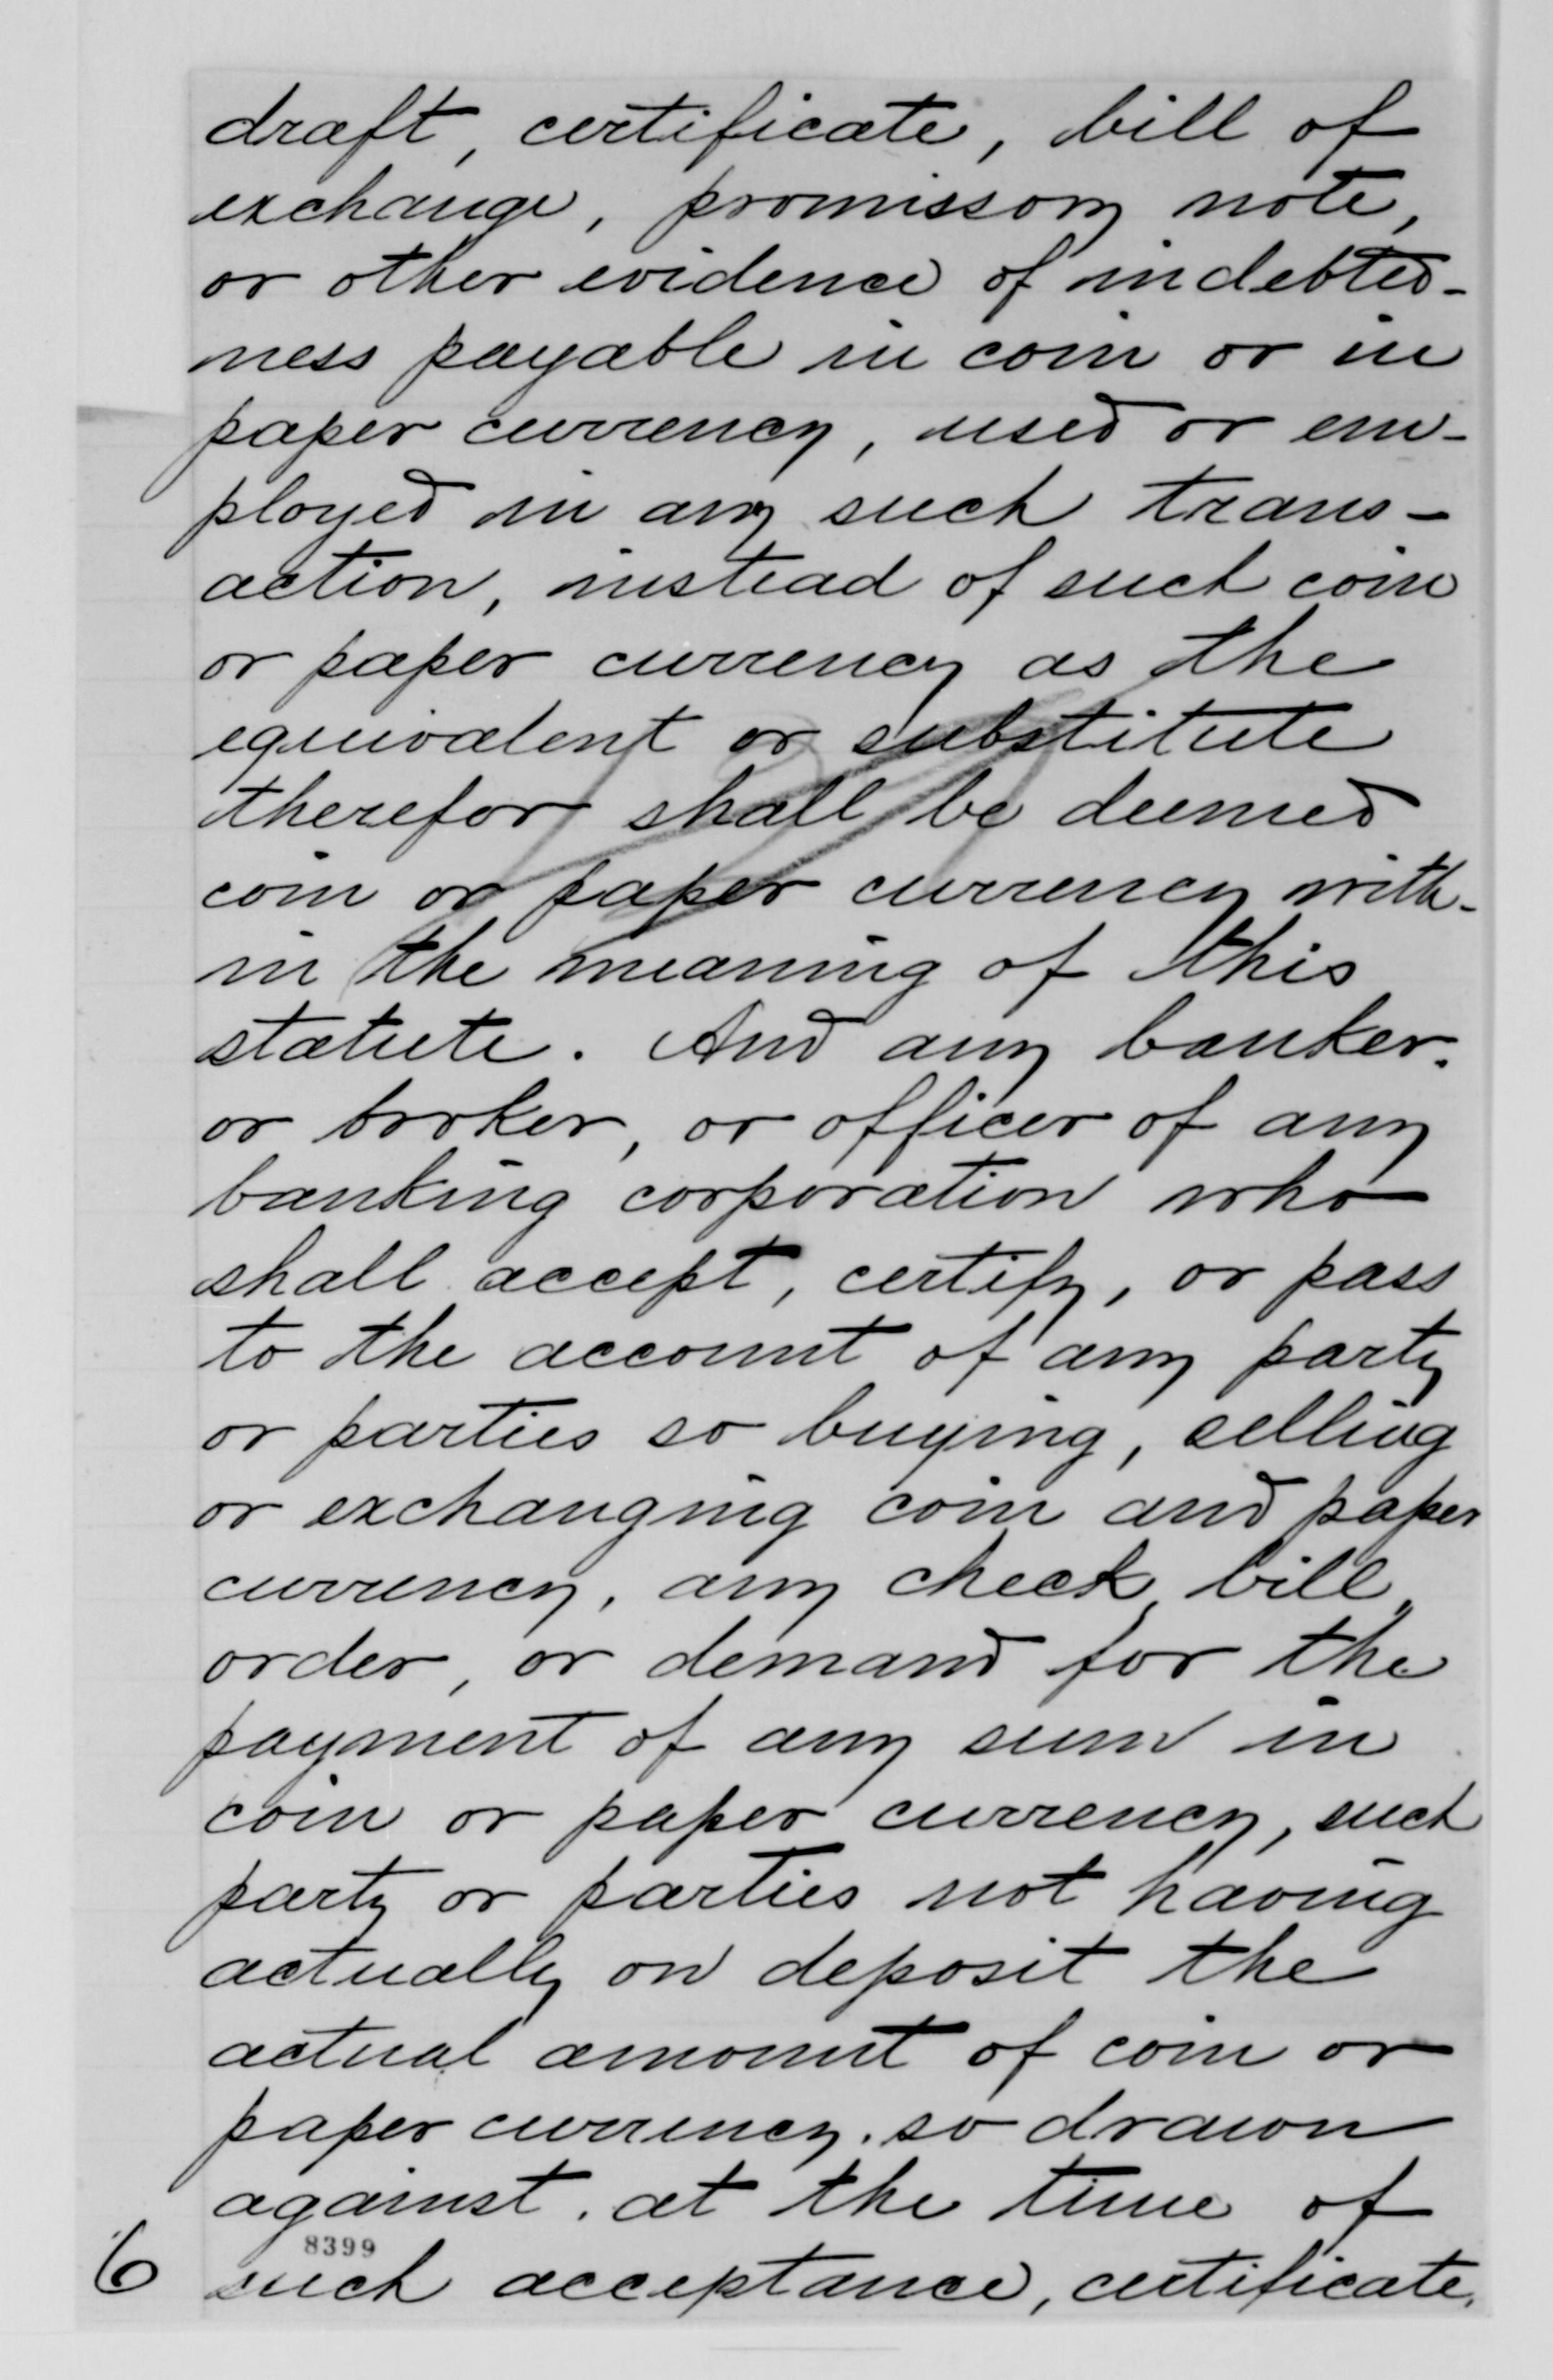 draft, certificate, bill of
exchange, promissory note,
or other evidence of indebted-
ness payable in coin or in
paper currency, used or em-
ployed in any such trans-
action, instead of such coin
or paper currency as the
equivalent or substitute
therefor shall be deemed
coin or paper currency with-
in the meaning of this
statute. And any banker.
or broker, or officer of any
banking corporation who
shall accept, certify, or pass
to the account of any party
or parties so buying, selling
or exchanging coin and paper
currency, any check, bill,
order, or demand for the
payment of any sum in
coin or paper currency, such
party or parties not having
actually on deposit the
actual amount of coin or
paper currency. so drawn
against. at the time of
8399
6 such acceptance, certificate,